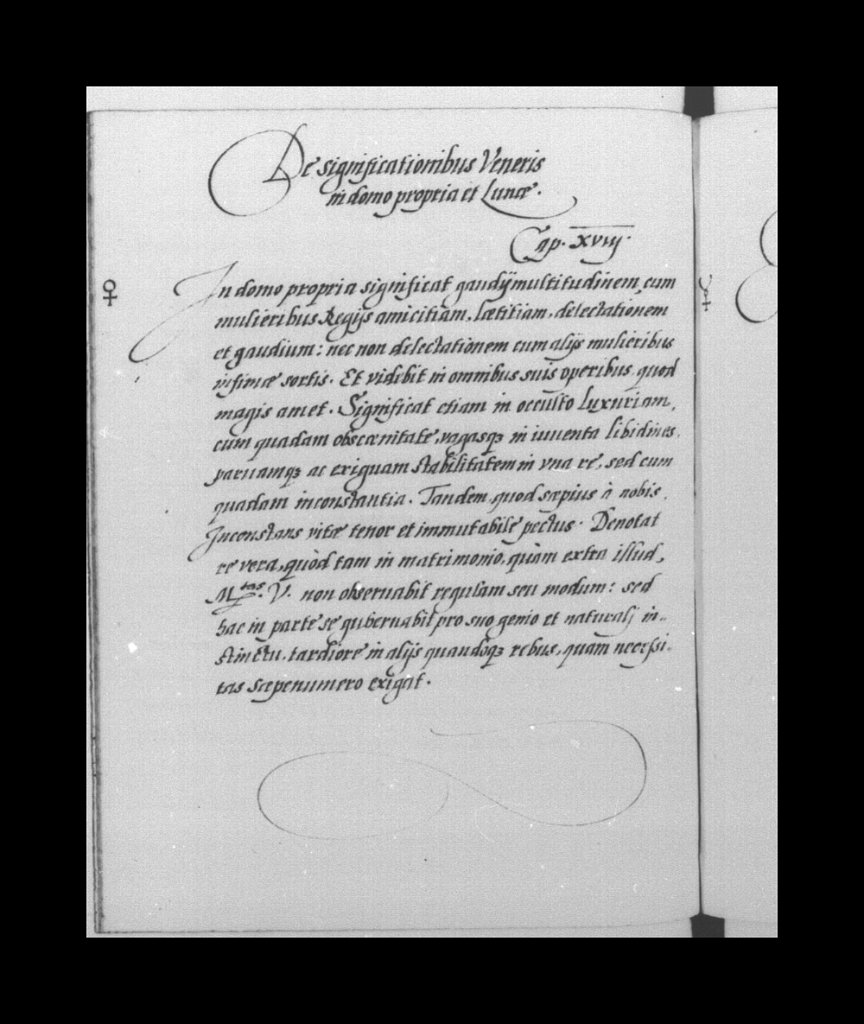 De significationibus Veneris
in domo propria et Lunæ.
Cap. XVIIIj.
♀
In domo propria significat gaudij multitudinem, cum
mulieribus Regijs amicitiam, lætitiam, delectationem
et gaudium: nec non delectationem cum alijs mulieribus
infimæ sortis. Et videbit in omnibus suis operibus quod
magis amet. Significat etiam in occulto luxuriam,
cum quadam obscænitate, vagasqꝫ in iuuenta libidines,
paruamqꝫ ac exiguam stabilitatem in vna re, sed cum
quadam inconstantia. Tandem quod sæpius à nobis,
Inconstans vitæ tenor et immutabile pectus. Denotat
re vera, quòd tam in matrimonio, quàm extra illud,
M.tas V. non obseruabit regulam seu modum: sed
hac in parte se gubernabit pro suo genio et naturalj in-
stinctu, tardiore in alijs quandoqꝫ rebus, quàm necessi-
tas sæpenumero exigat.